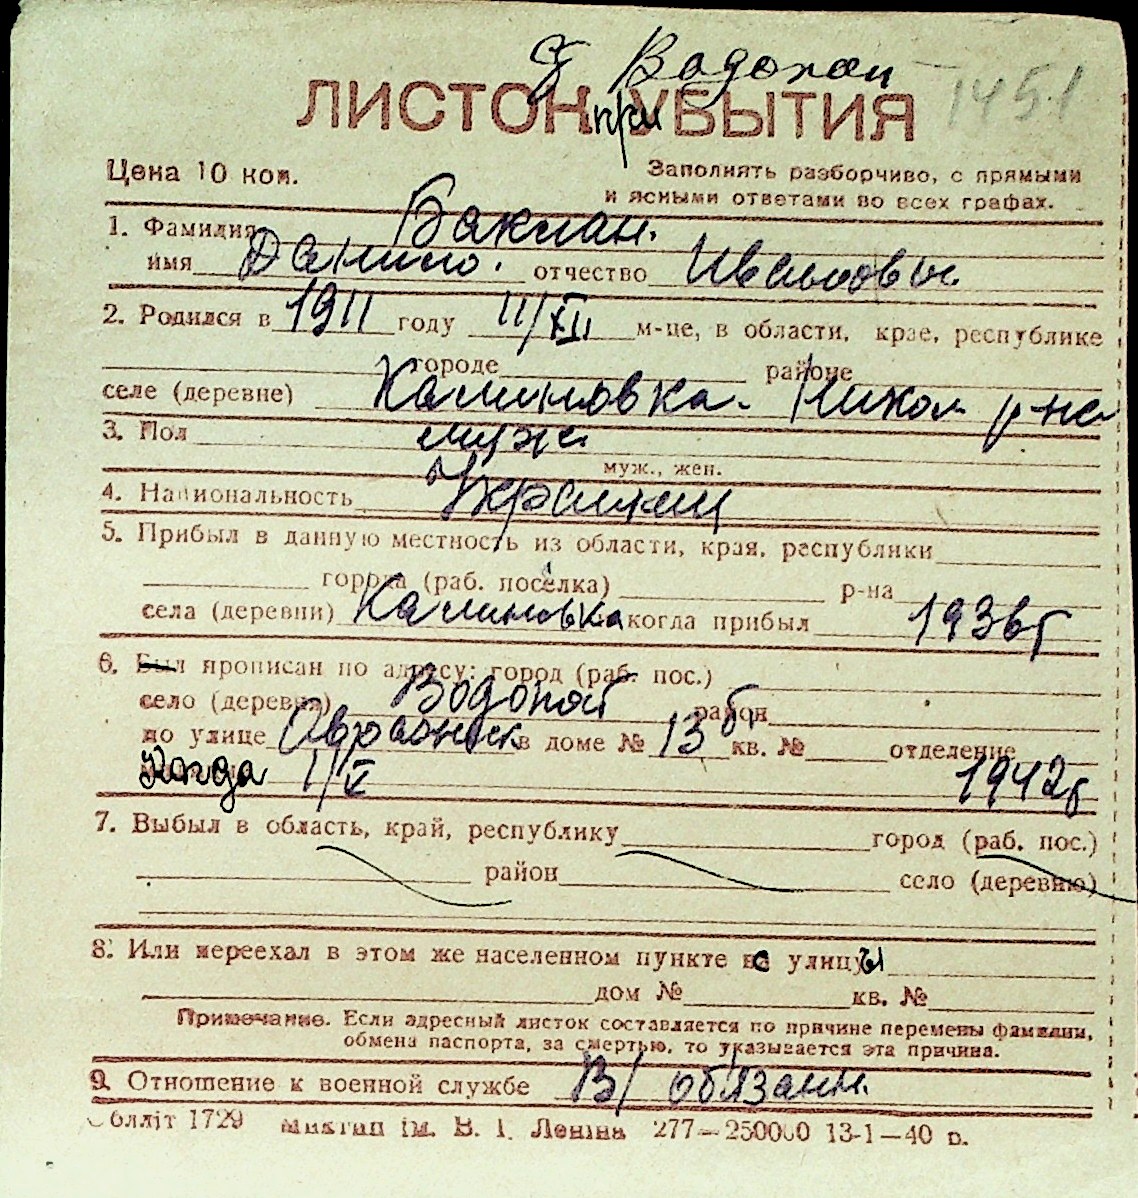 с Водопой
ЛИСТОК при УБЫТИЯ 1451
Цена 10 коп. Заполнять разборчиво, с прямыми
и ясными ответами во всех графах.
1. Фамилия Баклан.
имя Данило. отчество Иванович
2. Родился в 1911 году 11/XII м-це, в области, крае, республике
городе районе
селе (деревне) Калиновка. Никол р-на
3. Пол муж.
муж., жен.
4. Национальность Украинец
5. Прибыл в данную местность из области, края, республики
города (раб. посёлка) р-на
села (деревни) Калиновка когда прибыл 1936г
6. Был прописан по адресу: город (раб. пос.)
село (деревня) Водопой район
по улице в доме № 13 б кв. № отделение
Когда 1/V 1942г
7. Выбыл в область, край, республику город (раб. пос.)
район село (деревню)
8. Или переехал в этом же населенном пункте с улицы
дом № кв. №
Примечание. Если адресный листок составляется по причине перемены фамилии,
обмена паспорта, за смертью, то указывается эта причина.
9. Отношение к военной службе В/обязанн.
Обллiт 1729 iм. В. I. Ленiна 277—250000 13-1—40 р.